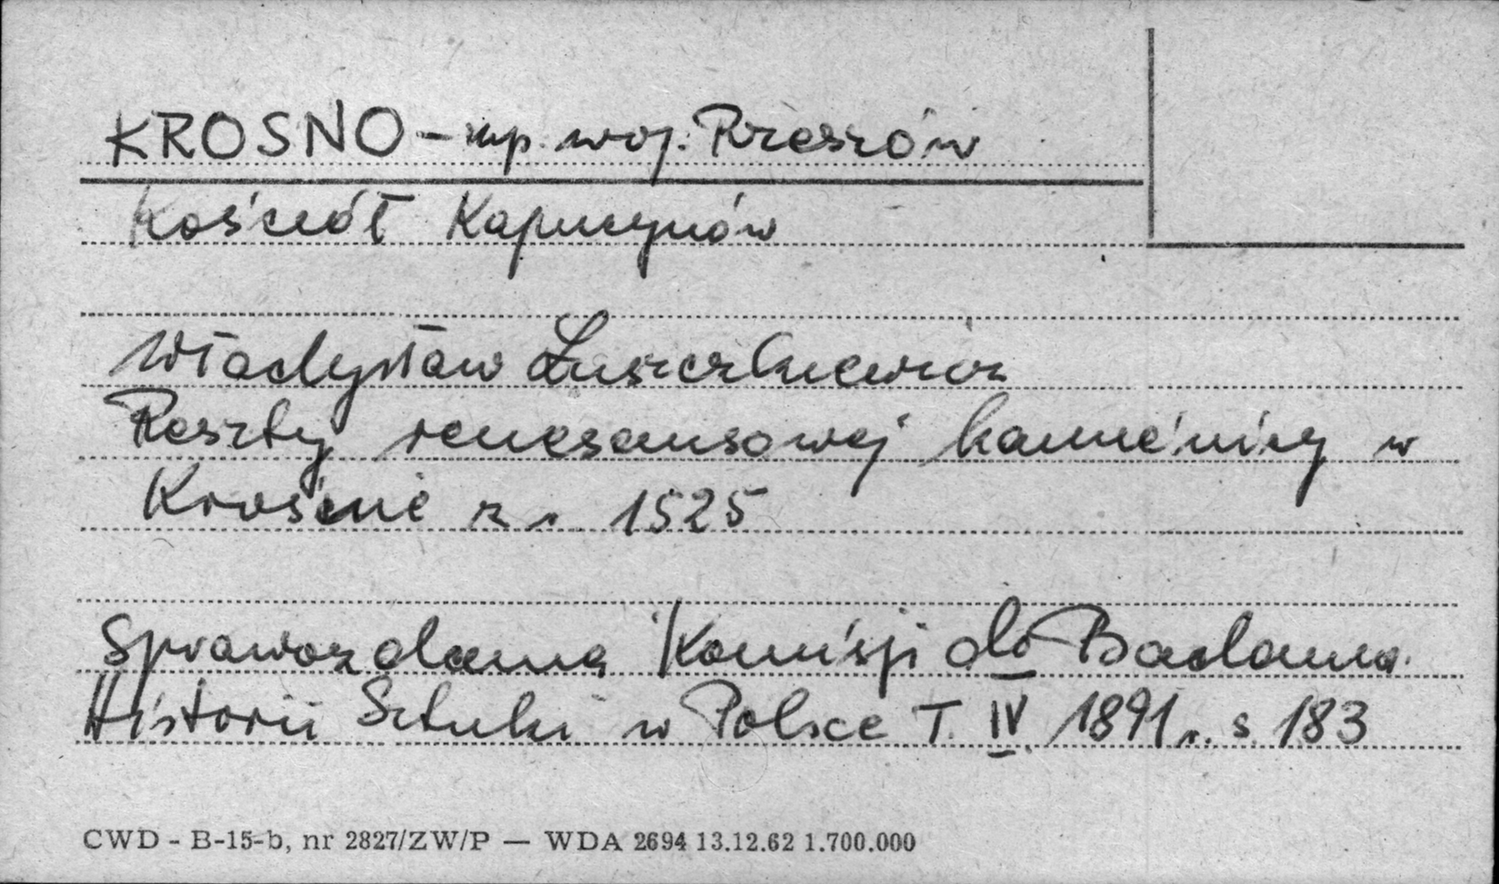 KROSNO - mp. woj. Rzeszów
Kościół Kapucynów
Władysław Łuszczkiewicz
Reszty renesansowej kamienicy w
Krośnie z r. 1525
Sprawozdania Komisji do Badania
Historii Sztuki w Polsce T. IV 1891 r. s. 183
CWD - B-15-b, nr 2827/ZW/P — WDA 2694 13.12.62 1.700.000